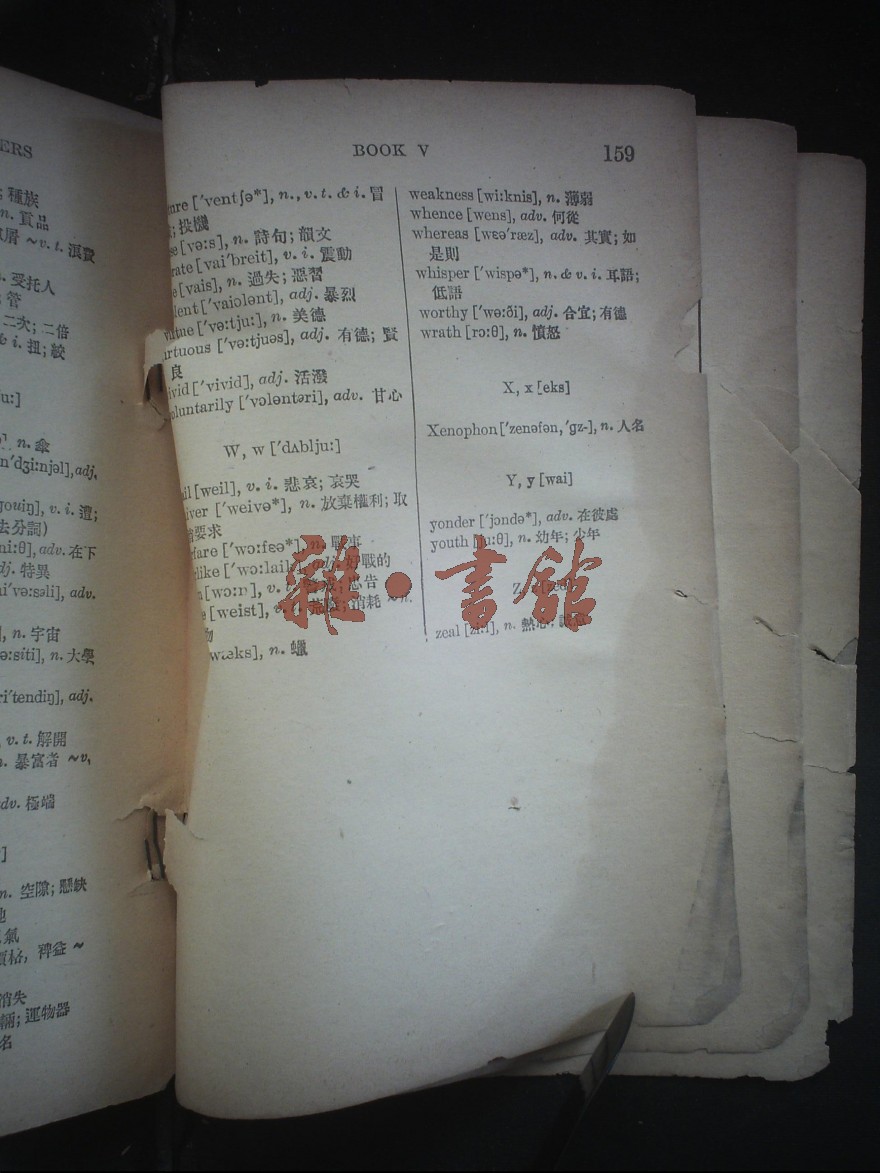 ERS
種族
n. 貨品
~v. t. 浪費
受托人
管
二次; 二倍
& i. 扭; 絞
u:]
n. 傘
n'dʒi:njəl], adj.
gouiŋ], v. i. 遭;
去分詞)
ni:θ], adv. 在下
dj. 特異
i'və:səli], adv.
], n. 宇宙
ə:siti], n. 大學
ri'tendiŋ], adj.
v. t. 解開
n. 暴富者 ~v.
dv. 極端
]
n. 空隙; 懸缺
氣
裨益 ~
消失
輛; 運物器
名
BOOK V
159
ure ['ventʃə*], n., v. t. & i. 冒
; 投機
se [və:s], n. 詩句; 韻文
rate [vai'breit], v. i. 震動
e [vais], n. 過失; 惡習
lent ['vaiələnt], adj. 暴烈
virtue ['və:tju:], n. 美德
irtuous ['və:tjuəs], adj. 有德; 賢
良
ivid ['vivid], adj. 活潑
oluntarily ['vɔləntəri], adv. 甘心
W, w ['dʌblju:]
il [weil], v. i. 悲哀; 哀哭
iver ['weivə*], n. 放棄權利; 取
要求
rfare ['wɔ:fɛə*], n. 戰事
rlike ['wɔ:laik], adj. 好戰的
[wɔ:n], v. 忠告
e [weist], 消耗 ~n.
物
wæks], n. 蠟
weakness [wi:knis], n. 薄弱
whence [wens], adv. 何從
whereas [wɛə'ræz], adv. 其實; 如
是則
whisper ['wispə*], n. & v. i. 耳語;
低語
worthy ['wə:ði], adj. 合宜; 有德
wrath [rɔ:θ], n. 憤怒
X, x [eks]
Xenophon ['zenəfən, 'gz-], n. 人名
Y, y [wai]
yonder ['jɔndə*], adv. 在彼處
youth [ju:θ], n. 幼年; 少年
Z, z [zed]
zeal [zi:l], n. 熱心;
雜•書館